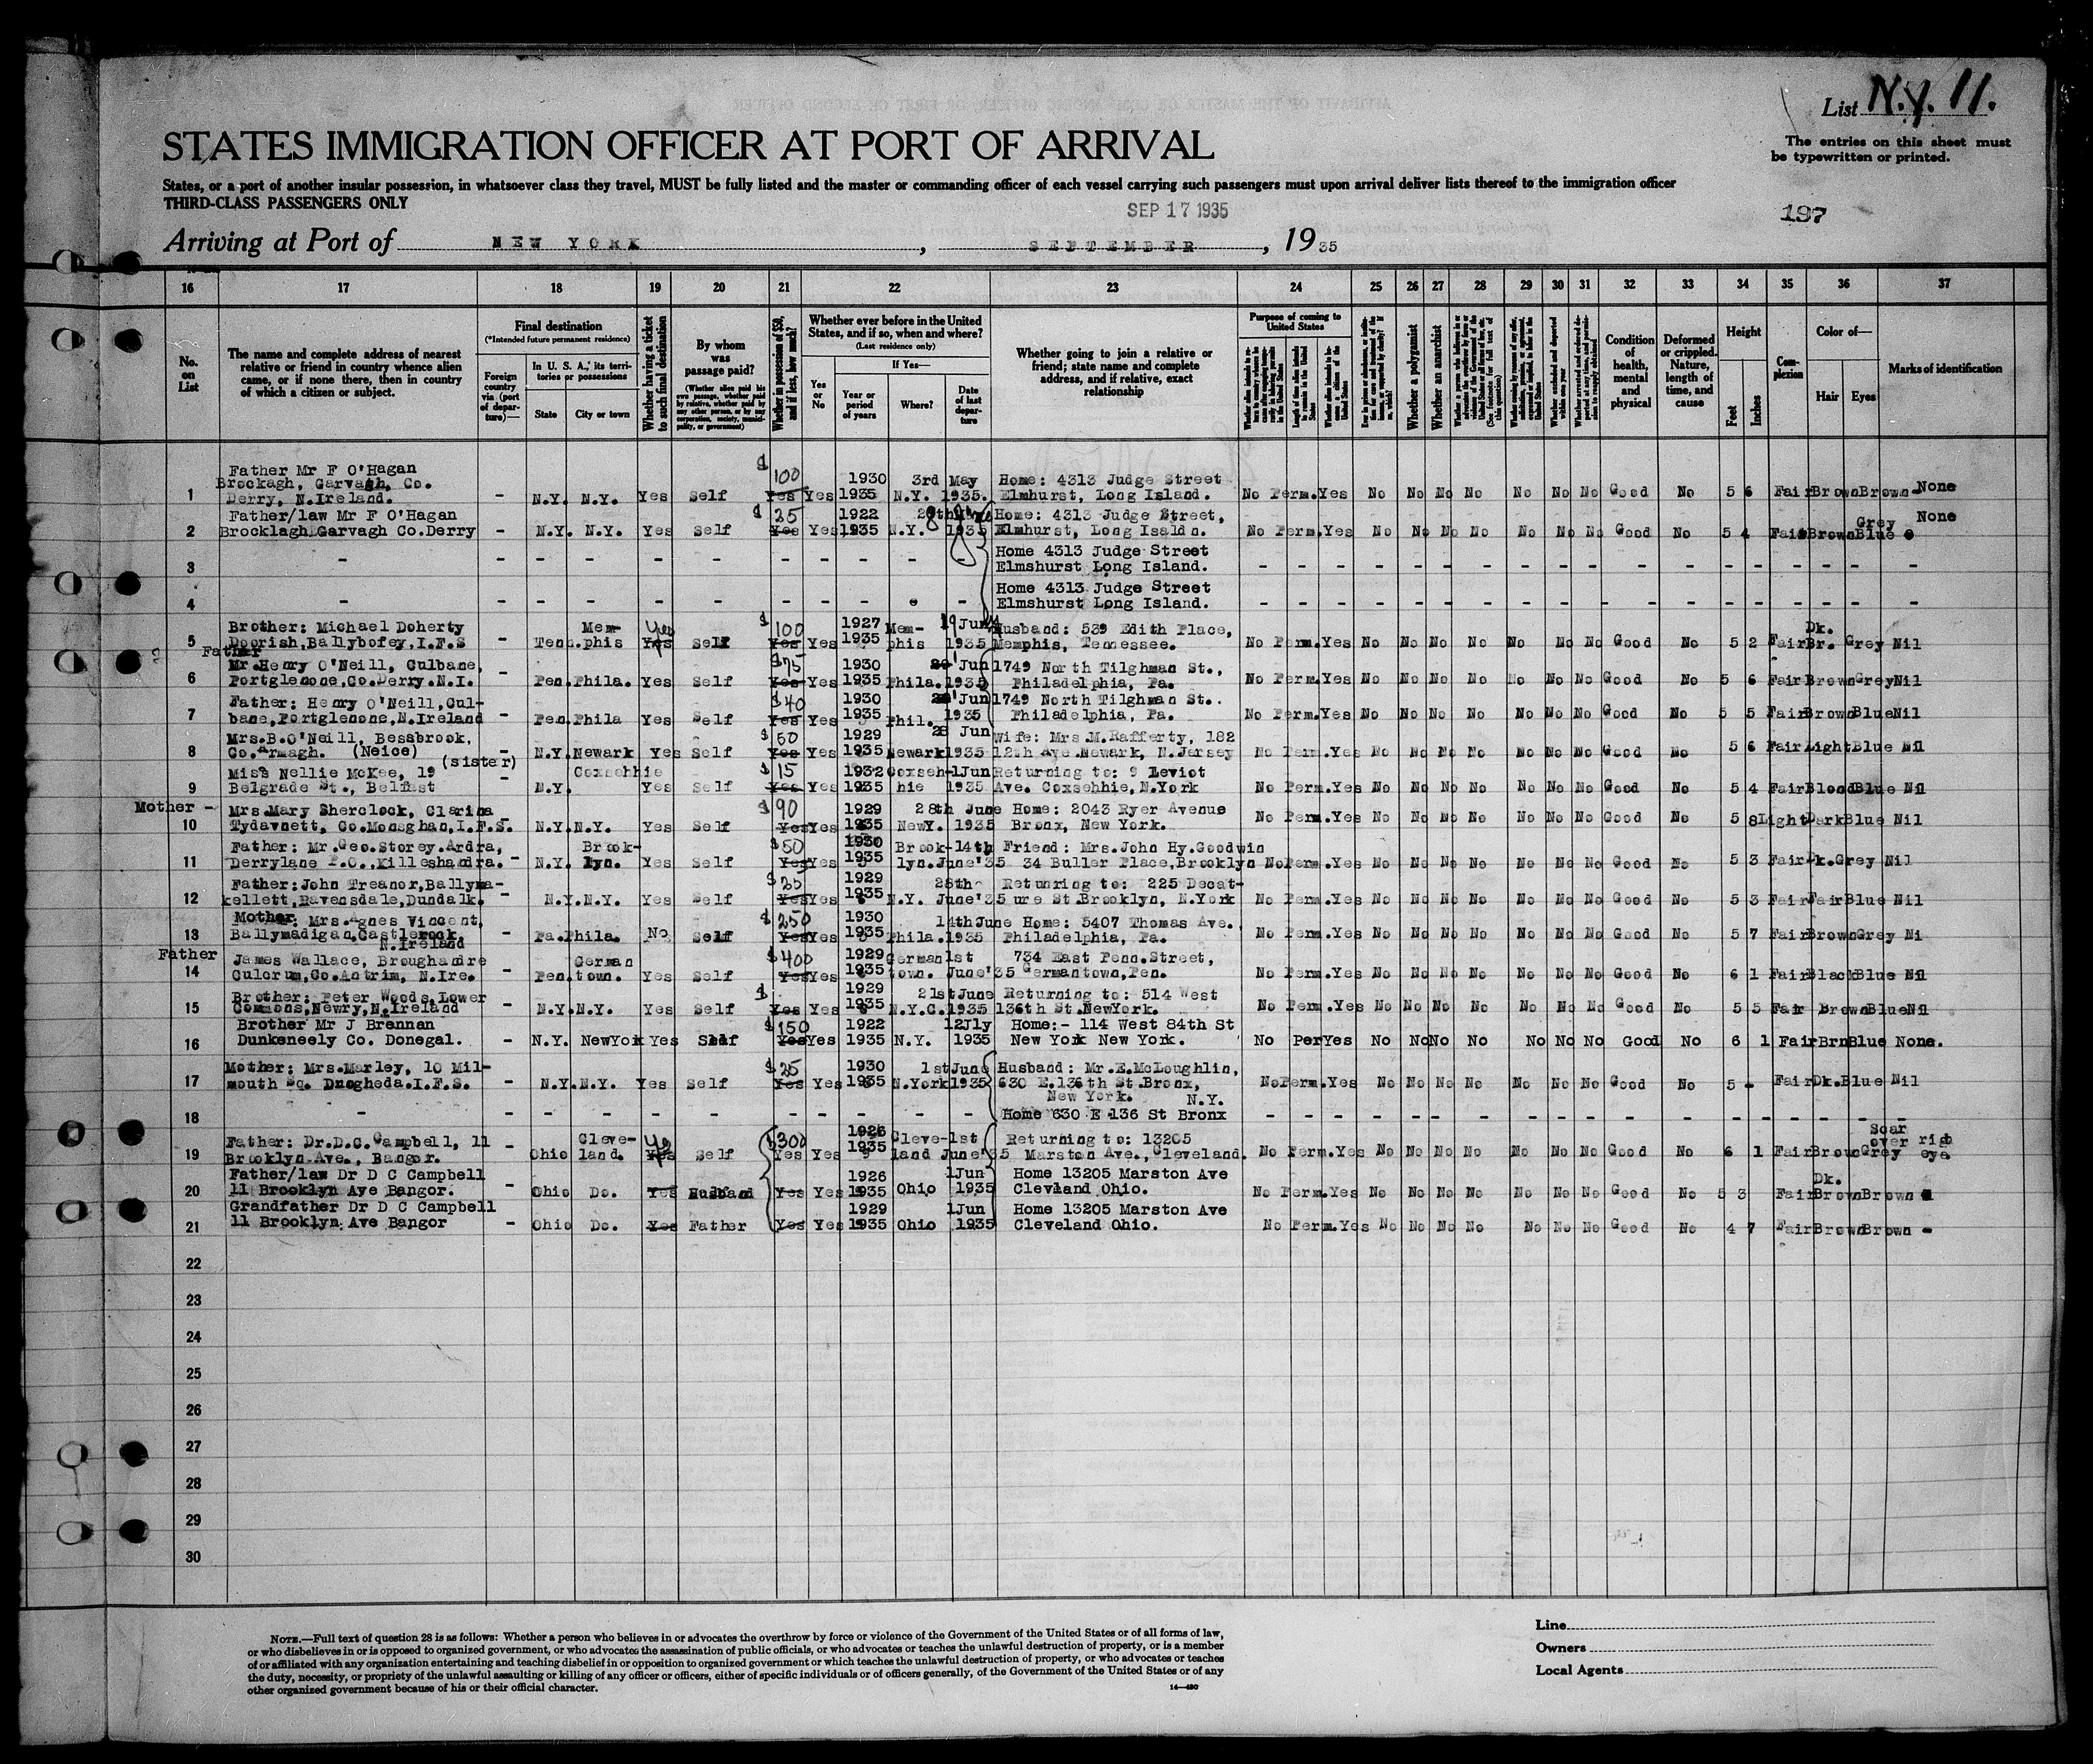 List N.Y. 11.
The entries on this sheet must
be typewritten or printed.
STATES IMMIGRATION OFFICER AT PORT OF ARRIVAL
States, or a port of another insular possession, in whatsoever class they travel, MUST be fully listed and the master or commanding officer of each vessel carrying such passengers must upon arrival deliver lists thereof to the immigration officer
THIRD-CLASS PASSENGERS ONLY
SEP 17 1935
197
Arriving at Port of NEW YORK, SEPTEMBER, 1935
16 17 18 19 20 21 22 23 24 25 26 27 28 29 30 31 32 33 34 35 36 37
No. on List
The name and complete address of nearest relative or friend in country whence alien came, or if none there, then in country of which a citizen or subject.
Final destination
(*Intended future permanent residence)
Foreign country via (port of departure)—
In U. S. A., its territories or possessions
State
City or town
Whether having a ticket to such final destination
By whom was passage paid?
(Whether alien paid his own passage, whether paid by relative, whether paid by any other person, or by any corporation, society, municipality, or government)
Whether in possession of $50, and if less, how much?
Whether ever before in the United States, and if so, when and where?
(Last residence only)
Yes or No
If Yes—
Year or period of years
Where?
Date of last departure
Whether going to join a relative or friend; state name and complete address, and if relative, exact relationship
Purpose of coming to United States
Whether a polygamist
Whether an anarchist
Condition of health, mental and physical
Deformed or crippled. Nature, length of time, and cause
Height
Feet
Inches
Complexion
Color of—
Hair
Eyes
Marks of identification
Father Mr F O'Hagan $ 100 1930 3rd May Home: 4313 Judge Street
Brockagh, Garvagh, Co.
1 Derry, N.Ireland. - N.Y. N.Y. Yes Self Yes Yes 1935 N.Y. 1935. Elmhurst, Long Island. No Perm. Yes No No No No No No No Good No 5 6 Fair Brown Brown - None
Father/law Mr F O'Hagan $ 25 1922 Home: 4313 Judge Street, Grey None
2 Brocklagh Garvagh Co.Derry N.Y. N.Y. Yes Self Yes Yes 1935 N.Y. 1935 Elmhurst, Long Isaldn. No Perm. Yes No No No No No No No Good No 5 4 Fair Brown Blue
Home 4313 Judge Street
3 - - - - - - - - - - Elmshurst Long Island. - - - - - - - - - - - - - - - - -
Home 4313 Judge Street
4 - - - - - - - - - - Elmshurst Long Island. - - - - - - - - - - - - - - - - -
Brother: Michael Doherty Mem- Yes $ 100 1927 Mem- 19 Jun Husband: 539 Edith Place, Dk.
5 Doorish, Ballybofey, I.F.S - Tenn. phis Yes Self Yes 1935 phis 1935 Memphis, Tennessee. No Perm. Yes No No No No No No No Good No 5 2 Fair Br. Grey Nil
Father
Mr.Henry O'Neill, Culbane, $75 1930 Jun 1749 North Tilghman St.,
6 Portglenone, Co.Derry.N.I. - Pen. Phila. Yes Self Yes Yes 1935 Phila. 1935 Philadelphia, Pa. No Perm. Yes No No No No No No No Good No 5 6 Fair Brown Grey Nil
Father: Henry O'Neill, Cul- $40 1930 Jun 1749 North Tilghman St..
7 bane, Portglenone, N.Ireland - Pen. Phila Yes Self Yes Yes 1935 Phil. 1935 Philadelphia, Pa. No Perm. Yes No No No No No No No Good No 5 5 Fair Brown Blue Nil
Mrs.B.O'Neill, Bessbrook, $ 50 1929 28 Jun Wife: Mrs M.Rafferty, 182
8 Co.Armagh. (Neice) - N.Y. Newark Yes Self Yes Yes 1935 Newark 1935 12th Ave.Newark, N.Jersey No Perm. Yes No No No No No No No Good No 5 6 Fair Light Blue Nil
(sister)
Miss Nellie McKee, 19 - Coxsehhie $ 15 1932 Coxseh- 1Jun Returning to: 9 Leviot
9 Belgrade St., Belfast N.Y. Yes Self Yes Yes 1935 hie 1935 Ave. Coxsehhie, N.York No Perm. Yes No No No No No No No Good No 5 4 Fair Blond Blue Nil
Mother - Mrs.Mary Sherclock, Clarina $ 90 1929 28th June Home: 2043 Ryer Avenue
10 Tydavnett, Co.Monaghan, I.F.S. - N.Y. N.Y. Yes Self Yes Yes 1935 NewY. 1935 Bronx, New York. No Perm. Yes No No No No No No No Good No 5 8 Light Dark Blue Nil
Father: Mr.Geo.Storey.Ardra, Brook- $50 1930 Brook- 14th Friend: Mrs.John Hy.Goodwin
11 Derrylane P.O., Killeshandra. - N.Y. lyn. Yes Self Yes Yes 1935 lyn. June'35 34 Buller Place, Brooklyn No Perm. Yes No No No No No No No Good No 5 3 Fair Dk. Grey Nil
Father: John Treanor, Ballyma- $25 1929 Retunring to: 225 Decat-
12 kellett, Ravensdale, Dundalk. - N.Y. N.Y. Yes Self Yes Yes 1935 N.Y. June'35 ure St.Brooklyn, N.York No Perm. Yes No No No No No No No Good No 5 3 Fair Fair Blue Nil
Mother: Mrs.Agnes Vincent, $ 250 1930 14th June Home: 5407 Thomas Ave.,
13 Ballymadigan, Castlerock. - Pa. Phila. No Self Yes Yes 1935 Phila. 1935 Philadelphia, Pa. No Perm. Yes No No No No No No No Good No 5 7 Fair Brown Grey Ni
N.Ireland
Father James Wallace, Broughandre German $ 400 1929 German 1st 734 East Penn.Street,
14 Culcrum, Co.Antrim, N.Ire. - Pen. town. Yes Self Yes Yes 1935 town. June'35 Germantown, Pen. No Perm. Yes No No No No No No No Good No 6 1 Fair Black Blue Nil
Brother: Peter Woods, Lower $ 1929 21st June Returning to: 514 West
15 Commons, Newry, N.Ireland - N.Y. N.Y. Yes Self Yes Yes 1935 N.Y.C. 1935 136th St.NewYork. No Perm. Yes No No No No No No No Good No 5 5 Fair Brown Blue Nil
Brother Mr J Brennan $ 150 1922 12Jly Home:- 114 West 84th St
16 Dunkeneely Co. Donegal. - N.Y. NewYok Yes Self Yes Yes 1935 N.Y. 1935 New York New York. No Per Yes No No No No No No No Good No 6 1 Fair Brn Blue None.
Mother: Mrs.Marley, 10 Mil- $ 25 1930 1st June Husband: Mr.E.McLoughlin,
17 mouth Sq. Drogheda.I.F.S. - N.Y. N.Y. Yes Self Yes Yes 1935 N.York 1935 630 E.136th St.Bronx, No Perm. Yes No No No No No No No Good No 5 - Fair Dk. Blue Nil
New York. N.Y.
18 - - - - - - - - - - Home 630 E 136 St Bronx - - - - - - - - - - - - - - - - -
Father: Dr.D.C.Campbell, 11 Cleve- Yes $300 1926 Cleve- 1st Returning to: 13205 Scar over righ
19 Brooklyn Ave., Bangor. - Ohio land. Yes Self Yes Yes 1935 land June'35 Marston Ave., Cleveland. No Perm. Yes No No No No No No No Good No 6 1 Fair Brown Grey eye
Father/law Dr D C Campbell 1926 1Jun Home 13205 Marston Ave Dk.
20 11 Brooklyn Aye Bangor. - Ohio Do. Yes Husband Yes Yes 1935 Ohio 1935 Clevland Ohio. No Perm. Yes No No No No No No No Good No 5 3 Fair Brown Brown
Grandfather Dr D C Campbell 1929 1Jun Home 13205 Marston Ave
21 11 Brooklyn Ave Bangor - Ohio Do. Yes Father Yes Yes 1935 Ohio 1935 Cleveland Ohio. No Perm. Yes No No No No No No No Good No 4 7 Fair Brown Brown -
22
23
24
25
26
27
28
29
30
NOTE.—Full text of question 28 is as follows: Whether a person who believes in or advocates the overthrow by force or violence of the Government of the United States or of all forms of law,
or who disbelieves in or is opposed to organized government, or who advocates the assassination of public officials, or who advocates or teaches the unlawful destruction of property, or is a member
of or affiliated with any organization entertaining and teaching disbelief in or opposition to organized government or which teaches the unlawful destruction of property, or who advocates or teaches
the duty, necessity, or propriety of the unlawful assaulting or killing of any officer or officers, either of specific individuals or of officers generally, of the Government of the United States or of any
other organized government because of his or their official character.
14—490
Line
Owners
Local Agents